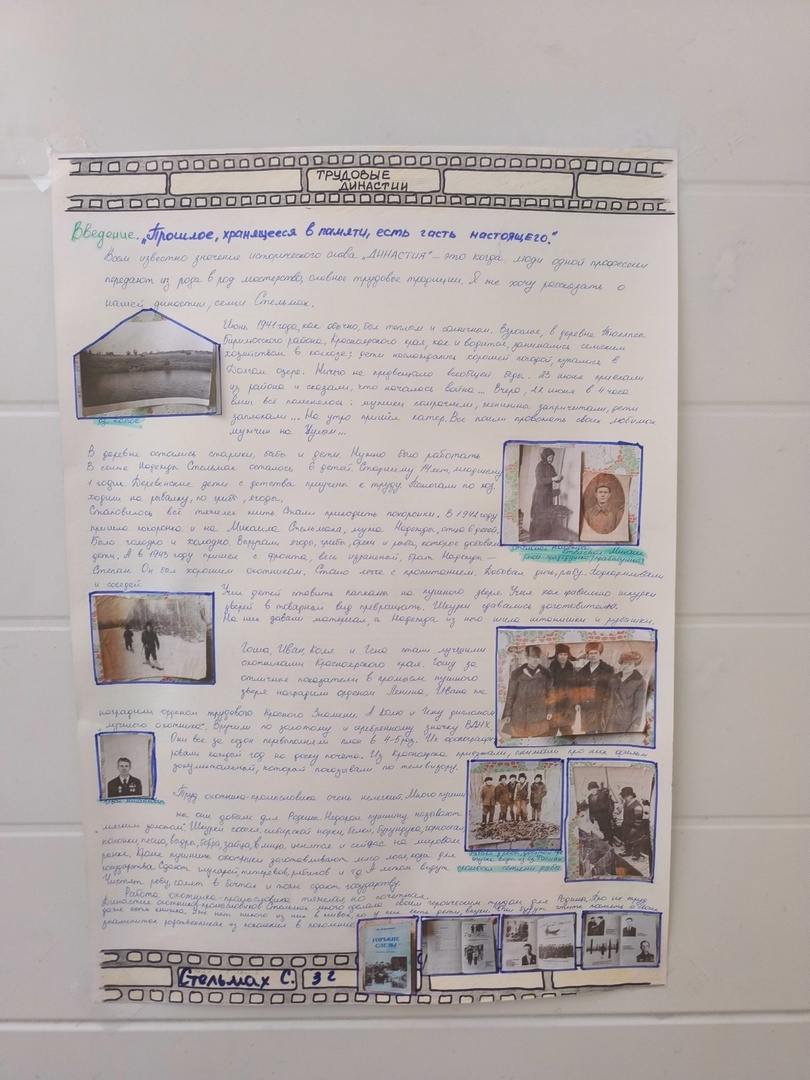 ТРУДОВЫЕ
ДИНАСТИИ
Введение. „Прошлое, хранящееся в памяти, есть часть настоящего."
Всем известно значение исторического слова „ДИНАСТИЯ" – это когда люди одной профессии
передают из рода в род мастерство, славное трудовые традиции. Я же хочу рассказать о
нашей династии, семьи Стельмах.
Июнь 1941 года, как обычно, был теплым и солнечным. Взрослые, в деревне
Бирилюсского района, Красноярского края, как и водится, занимались сельским
хозяйством в колхозе; дети наслаждались хорошей погодой, купались в
озере. Ничто не предвещало всеобщей беды. 23 июня приехали
из района и сказали, что началась война... Вчера, 22 июня в 4 часа
вмиг всё поменялось: мужики помрачнели, женщины запричитали, дети
заплакали... На утро пришёл катер. Все пошли провожать своих любимых
мужчин на Чулым...
В деревне остались старики, бабы и дети. Нужно было работать
В семье Надежды Стельмах осталось 6 детей. Старшему 14 лет, младшему
1 годик. Деревенские дети с детства приучены к труду. Помогали по хоз.
ходили на рыбалку, по грибы, ягоды.
Становилось всё тяжелее жить. Стали приходить похоронки. В 1942 году
пришла похоронка и на Михаила Стельмаха, мужа Надежды, отца 6 детей.
Было голодно и холодно. Выручали ягоды, грибы, орехи и рыба, которое добывали
дети. А в 1943 году пришел с фронта, весь израненный, брат Надежды –
Степан. Он был хорошим охотником. Стало легче с пропитанием. Добывал дичь, рыбу. Подкармливали
и соседей.
Учил детей ставить капканы на пушного зверя. Учил как правильно шкурки
зверей в товарный вид превращать. Шкурки сдавались заготовителям.
На них давали материал, а Надежда из него шила штанишки и рубашки.
Гоша, Иван, Коля и Гена стали лучшими
охотниками Красноярского края. Гошу за
отличные показатели в промысле пушного
зверя наградили орденом Ленина. Ивана же
наградили орденом трудового Красного Знамени. А Колю и Гену дипломом
лучшего охотника". Вручили по золотому и серебряному значку ВДНХ.
Они все за сезон перевыполняли план в 4-5 раз. Их фотографи-
ровали каждый год на доску почета. Из Красноярска приезжали, снимали про них фильм
документальный, который показывали по телевизору.
Труд охотника-промысловика очень нелегкий. Много пушни-
ны они добыли для Родины. Недаром пушнину называют
„мягким золотом". Шкурки соболя, сибирской норки, белки, бурундука, горностая,
колонка, песца, выдры, бобра, зайца, волка, ценятся и сейчас на мировом
рынке. Кроме пушнины охотники заготавливают мясо лося, коз для
государства. Сдают глухарей, тетеревов, рябчиков и т.д. А летом ведут
Чистят рыбу, солят в бочках и тоже сдают государству.
Работа охотника-промысловика тяжелая но почетная.
Династия охотников-промысловиков Стельмах много сделала своим героическим трудом для Родины. Про их труд
даже есть книга. Уже нет никого из них в живых, но у них есть дети, внуки.
ГОРЬКИЕ
СЛЁЗЫ
Стельмах С. 3 г